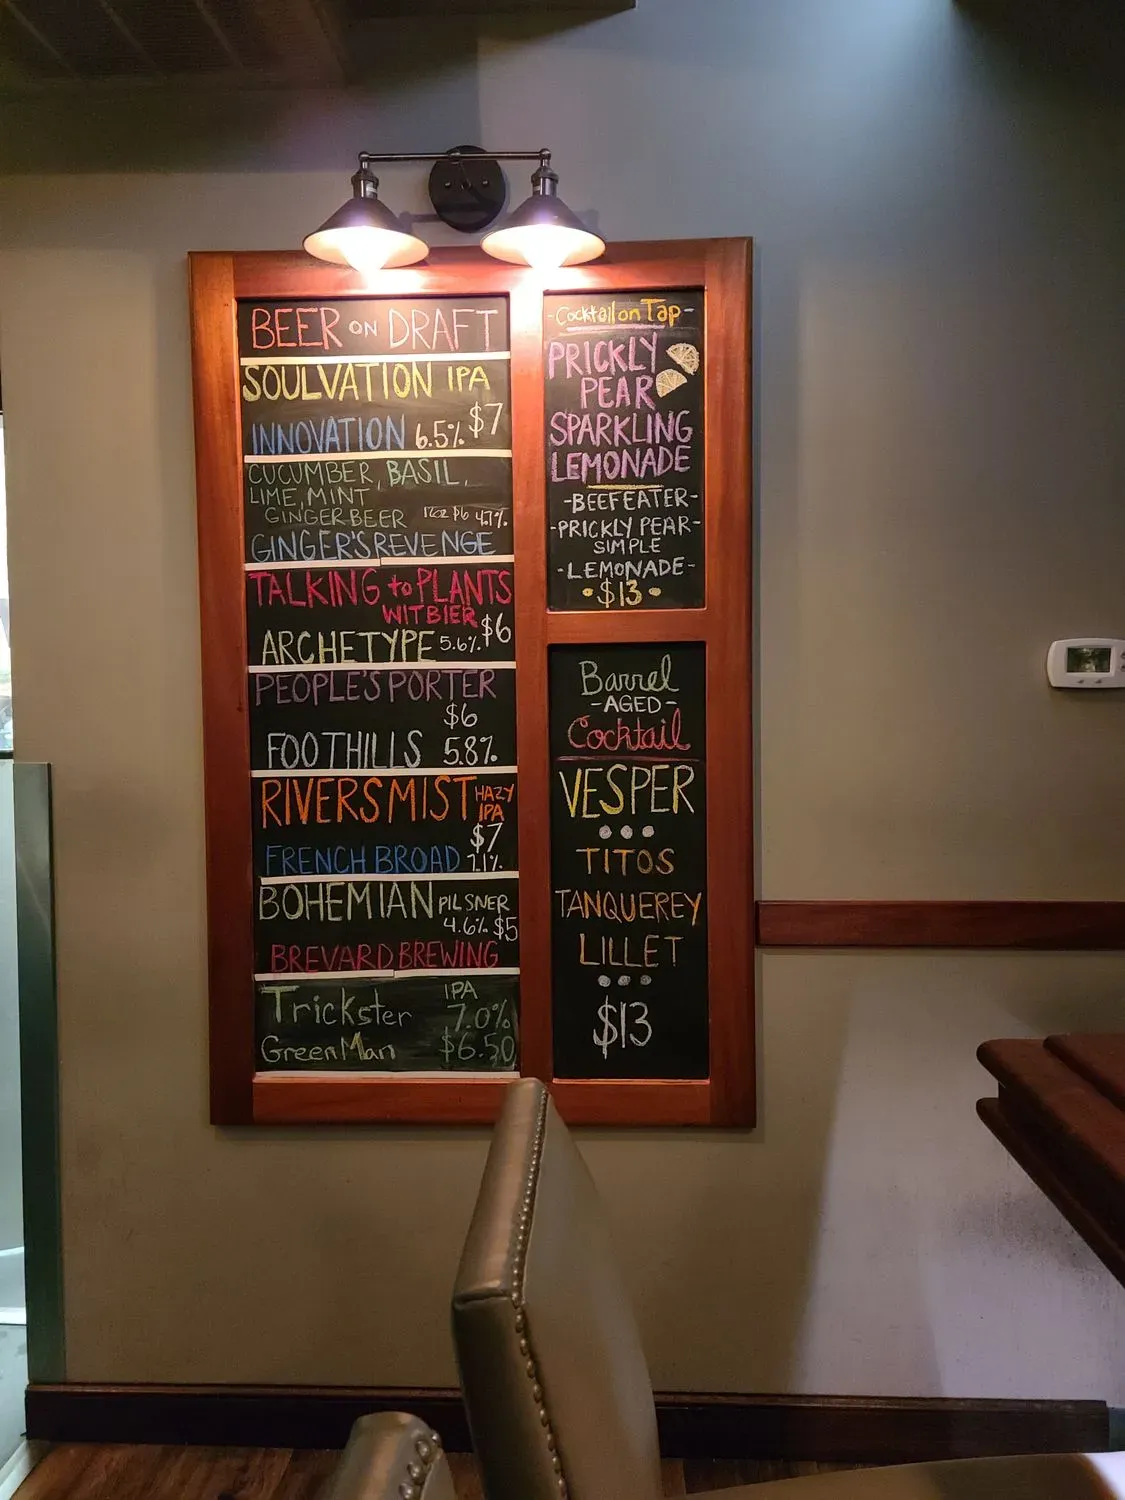 BEER ON DRAFT
SOULVATION IPA
$7
INNOVATION 6.5%
CUCUMBER, BASIL,
LIME, MINT
GINGER BEER 12oz $6 4.7%
GINGER'S REVENGE
TALKING to PLANTS
WITBIER
$6
ARCHETYPE 5.6%
PEOPLE'S PORTER
$6
FOOTHILLS 5.8%
RIVERSMIST HAZY
IPA
$7
FRENCH BROAD 7.1%
BOHEMIAN PILSNER
4.6% $5
BREVARD BREWING
Trickster IPA
7.0%
GreenMan $6.50
-Cocktail on Tap-
PRICKLY
PEAR
SPARKLING
LEMONADE
-BEEFEATER-
-PRICKLY PEAR-
SIMPLE
-LEMONADE-
• $13 •
Barrel
-AGED-
Cocktail
VESPER
• • •
TITOS
TANQUEREY
LILLET
• • •
$13